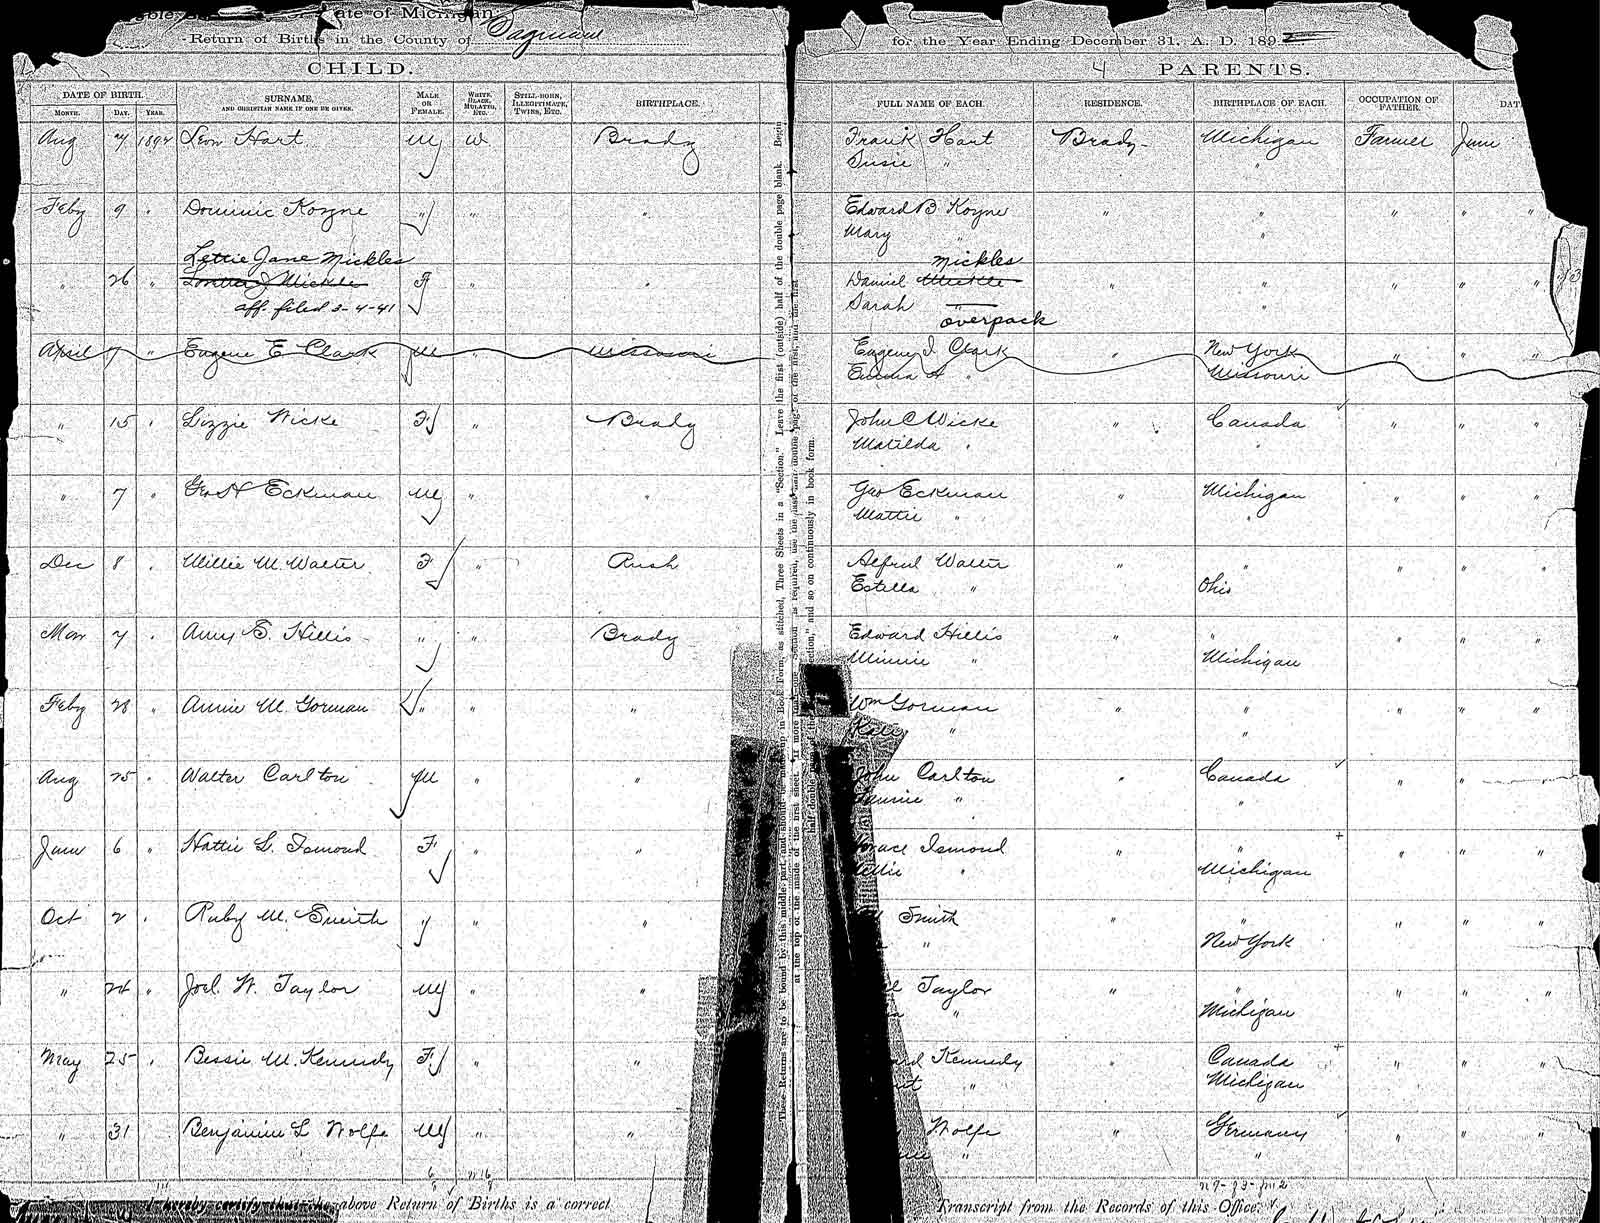 State of Michigan
Return of Births in the County of Saginaw for the Year Ending December 31, A. D. 189
CHILD. 4 PARENTS.
DATE OF BIRTH. SURNAME, AND CHRISTIAN NAME IF ONE BE GIVEN. MALE OR FEMALE. WHITE, BLACK, MULATTO, ETC. STILL-BORN, ILLEGITIMATE, TWINS, ETC. BIRTHPLACE. FULL NAME OF EACH. RESIDENCE. BIRTHPLACE OF EACH. OCCUPATION OF FATHER. DAT
MONTH. DAY. YEAR.
Aug 7 1894 Leon Hart M W. Brady Frank Hart Brady Michigan Farmer June
Susie " "
Feby 9 " Dominic Koyne " " " Edward B Koyne " " " " "
Mary " "
Lettie Jane Mickles Mickles
" 26 " Loretta J Mickle F Daniel Mickle " " " " "
aff. filed 3-4-41 Sarah " "
overpack
April 7 " Eugene E Clark M " Missouri Eugene I. Clark " New York " " "
Emma A " Missouri
" 15 " Lizzie Wicke F " Brady John C Wicke " Canada " " "
Matilda " "
" 7 " Geo H Eckman M " " Geo Eckman " Michigan " " "
Mattie " "
Dec 8 " Millie M. Walter F " Rush Alfred Walter " " " " "
Estella " Ohio
Mar 7 " Amy S. Hillis " " Brady Edward Hillis " " " " "
Minnie " Michigan
Feby 28 " Annie M. Gorman " " " Wm Gorman " " " " "
Kate " "
Aug 25 " Walter Carlton M " " John Carlton " Canada " "
Fannie " "
June 6 " Hattie L. Ismond F " " Horace Ismond " " " " "
Nellie " Michigan
Oct 2 " Ruby M. Smith " " " Smith " " " " "
" New York
" 24 " Joel. W. Taylor M " " Taylor " " " " "
" Michigan
May 25 " Bessie M. Kennedy F " " Kennedy " Canada " " "
" Michigan
" 31 Benjamin L Wolfe M " " Wolfe " Germany " " "
" "
I hereby certify that the above Return of Births is a correct Transcript from the Records of this Office.
These Returns are to be bound by this middle part, and should be made up in Book Form, as stitched, Three Sheets in a "Section." Leave the first (outside) half of the double page blank. Begin
at the top of the inside of the first sheet. If more than one Section is required, use the last half double page of the first, and the first
half-double page of the "Section," and so on continuously in book form.